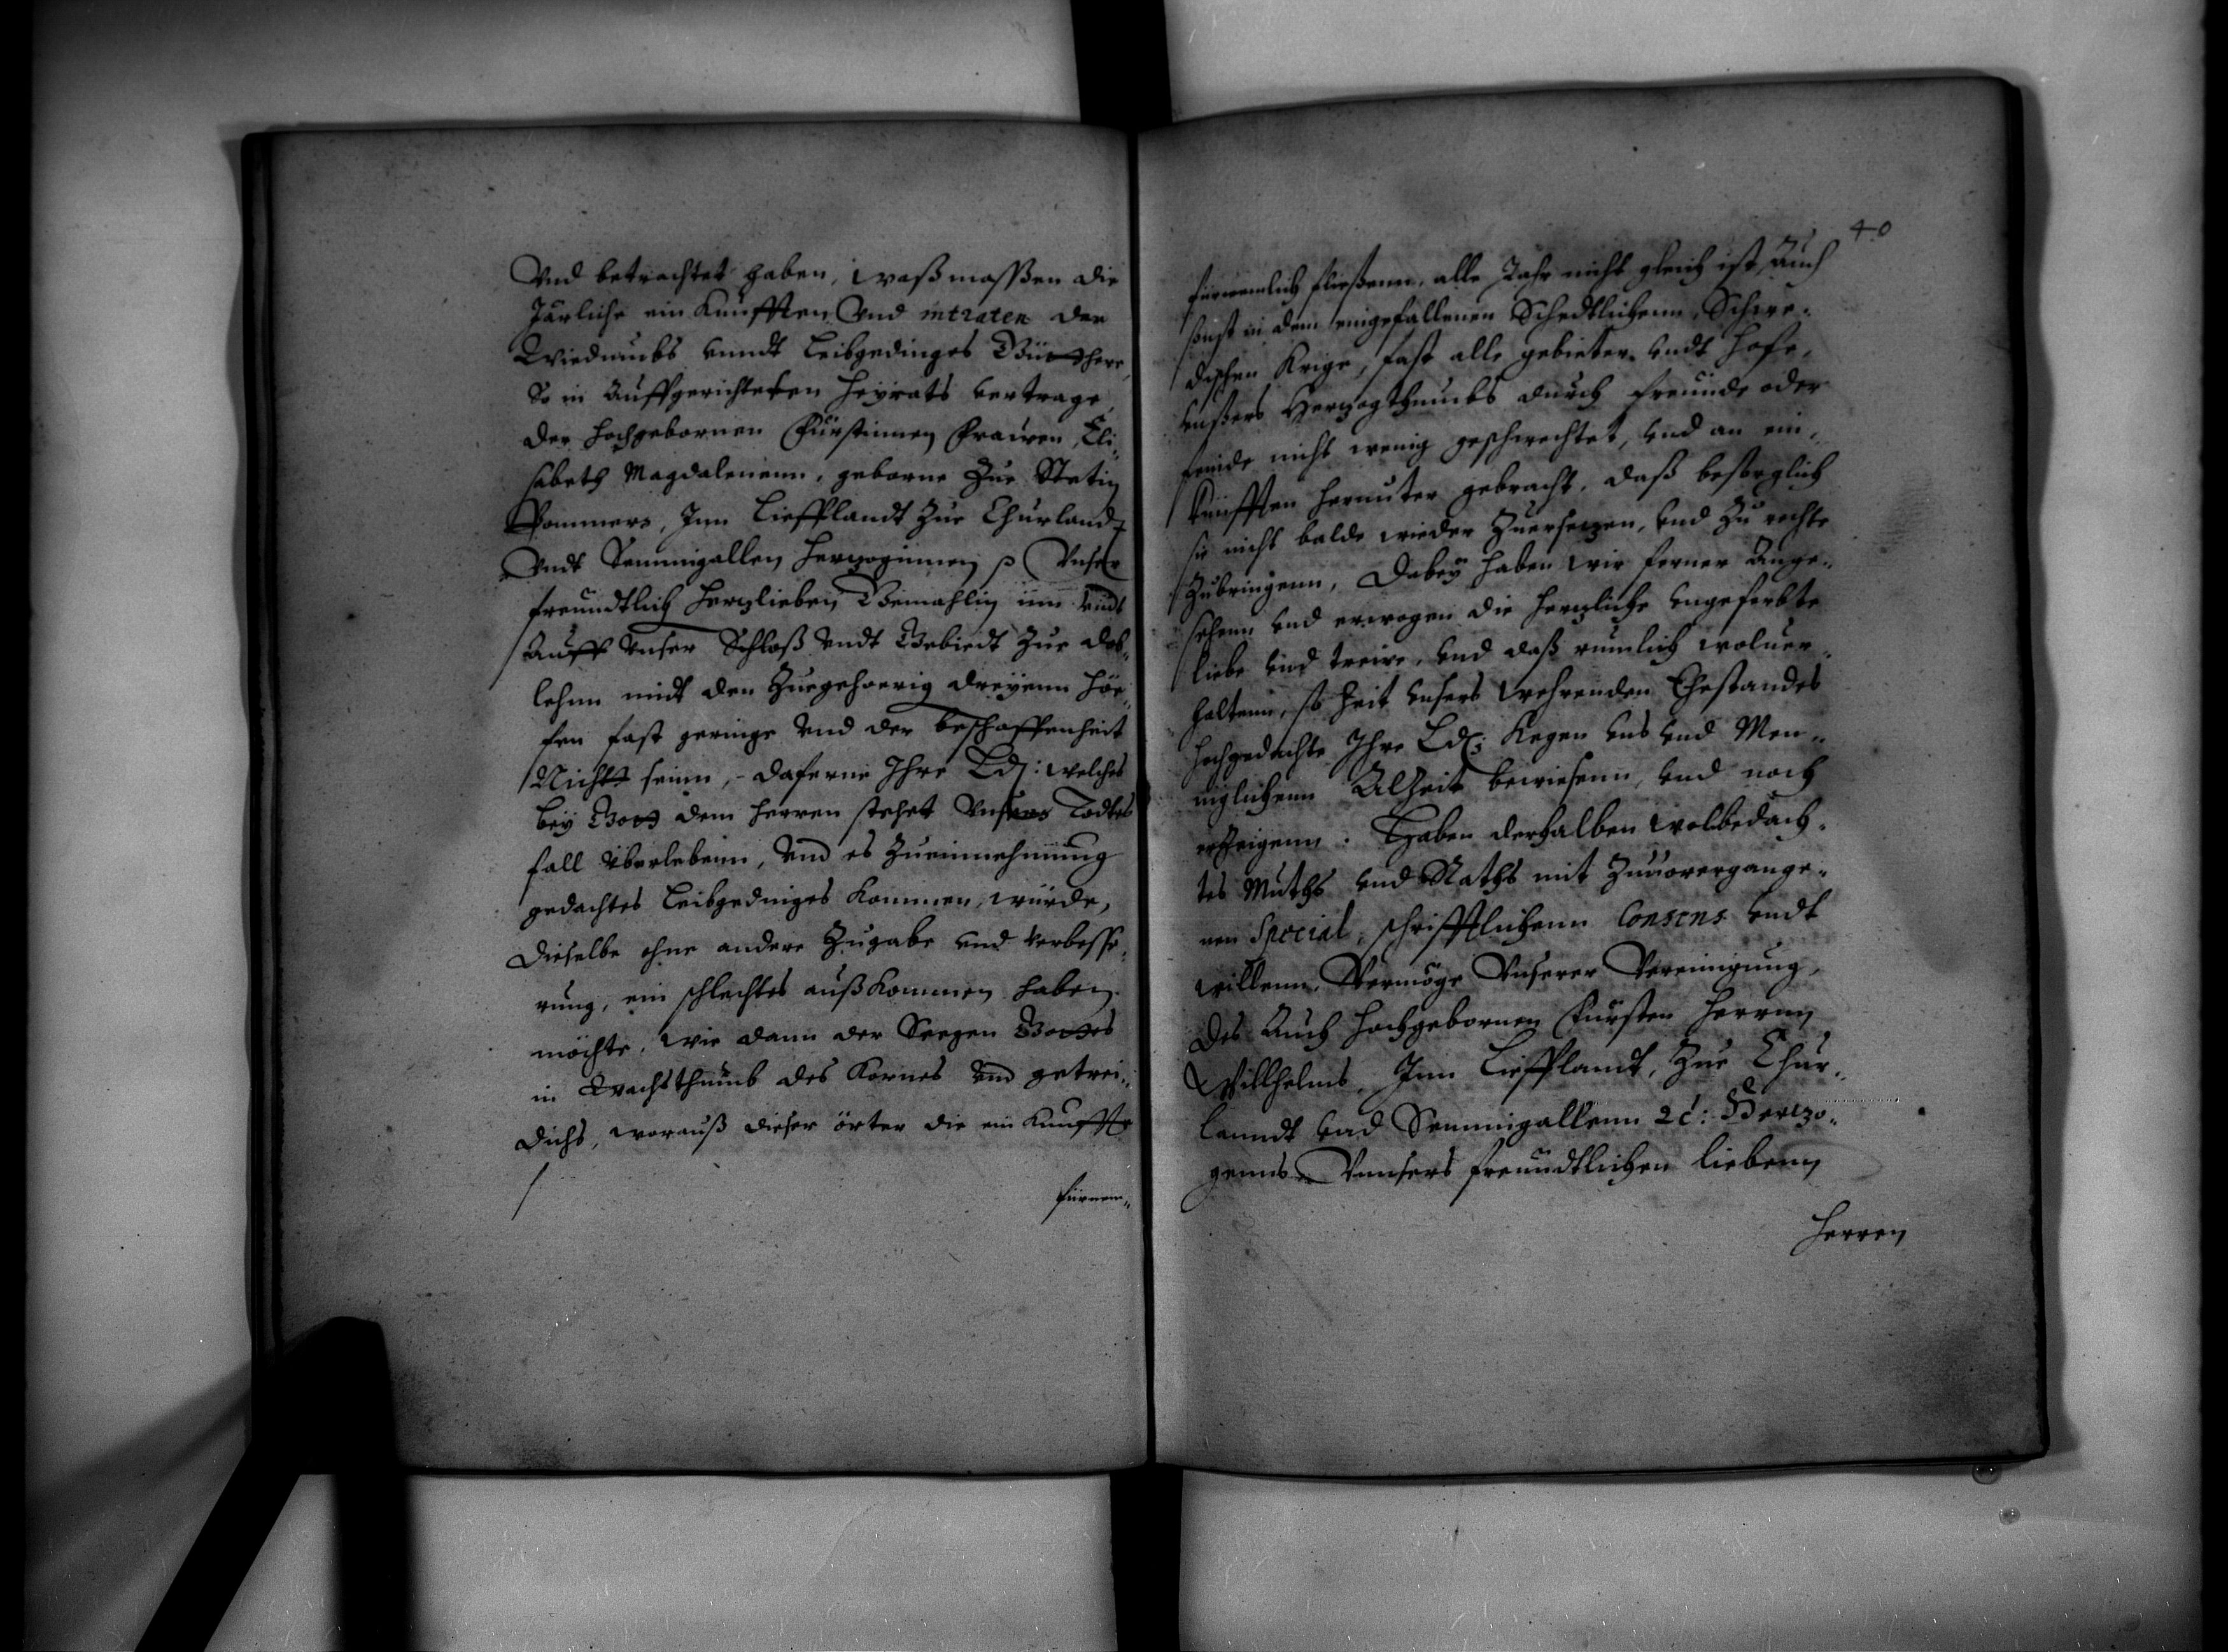 Vnd betrachtet haben, waßmassßen die
Järliche ein Künfften Vnd intraten der
Wiedumbs vnndt Leibgedinges Gütthere,
So in Auffgerichteten heyrats vertrage
der hochgebornen Fürstinnen Frauwen, Eli„
sabeth Magdalenenn, geborne Zur Stetin
Pommern, Inn Liefflandt Zur Churland
Vndt Semmigallen hertzoginnen p Vnser
freundtlich hertzlieben Gemahlin inn Vndt
Auff Vnser Schloß Vndt Gebiedt Zur Dob„
lehnn midt den Zuegehoerig dreyenn Höe„
fen fast geringe Vnd der beschaffenheit
Nichtt seinn, daferne Ihre Ld: welches
bey Gott dem herren stehet Vnsers Todtes
fall überlebenn, Vnd es Zueinnehmung
gedachtes Leibgedinges Kommen, würde,
dieselbe ohne andere Zugabe vnd verbesse„
rung, ein schlechtes außkommen haben
möchte, wie dann der Seegen Gottes
in Wachsthumb des Kornes Vnd getrei„
dichs, worauß dieser örter die ein Kunffte
fürnem„
40
fürnemlich fließenn, alle Jahr nicht gleich ist, Auch
sonst in dem eingefallenen Schedtlichenn, Schwe„
dischen Krige, fast alle gebieter vndt Hofe,
vnßers Hertzogthumbs durch freunde oder
feinde nicht wenig geschwechtet, vnd an ein„
Künfften herunter gebracht, daß besorglich
sie nicht balde wieder Zuersetzen, vnd Zu rechte
Zubringenn, Dabey haben wir ferner Ange„
sehenn vnd erwogen die hertzliche vngeferbte
liebe vnd treiwe, vnd daß rümlich woluer„
haltenn, so Zeit vnsers wehrenden Ehestandes
hochgedachte Ihre Ld: Kegen vns vnd Men„
niglichenn Alzeit bewiesenn, vnd noch
erzeigenn. Haben derhalben wolbedach„
tes Muths vnd Raths mit Zuuorergange„
nen Special, schrifftlichenn Consens vndt
willenn, Vermöge Vnserer Vereinigung,
des Auch hochgebornen Fürsten Herrnn
Willhelms, Inn Liefflandt, Zur Chur„
lanndt vnd Semmigallenn 2c: Hertzo„
genns Vnnsers freundtlichen liebenn
Herren